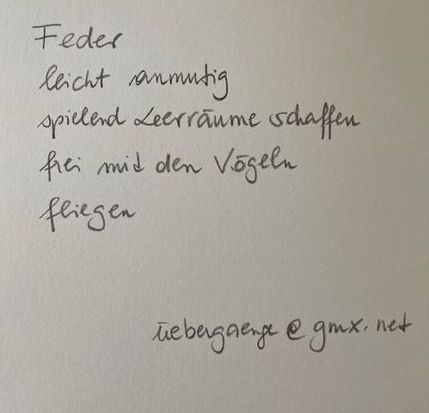 Feder
leicht anmutig
spielend Leerräume schaffen
frei mit den Vögeln
fliegen
uebergaenge@gmx.net